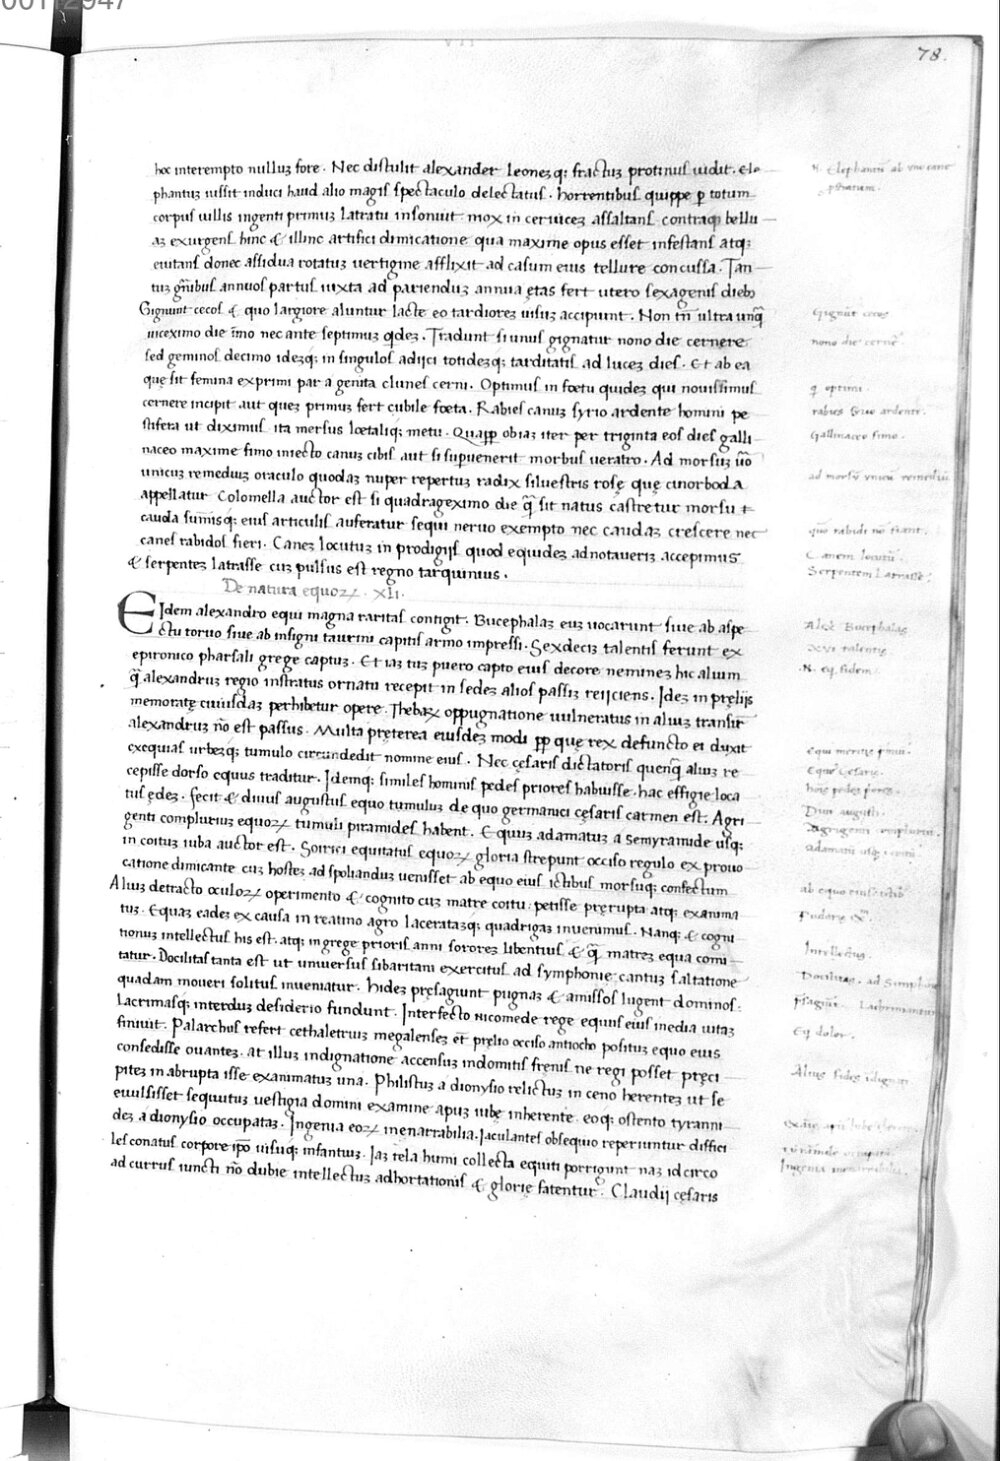 00112947
VII
78.
hoc interempto nulluʒ fore. Nec distulit alexander leoneʒqʒ fractuʒ protinus uidit. ele
phantuʒ iussit induci haud alio magis spectaculo delectatus. horrentibus quippe ꝑ totum
corpus uillis ingenti primuʒ latratu insonuit mox in ceruiceʒ assaltans contraqʒ bellu
aʒ exurgens hinc & illinc artifici dimicatione qua maxime opus esset infestans atqʒ
euitans donec assidua rotatuʒ uertigine afflixit ad casum eius tellure concussa. Tan
tuʒ gn̄ibus annuos partus iuxta ad parienduʒ annua ętas fert utero sexagenis diebꝫ
Gignunt cecos & quo largiore aluntur lacte eo tardioreʒ uisuʒ accipiunt. Non tn̄ ultra unq̄
uicesimo die im̄o nec ante septimuʒ qͥdeʒ. Tradunt si unus gignatur nono die cernere
sed geminos decimo ideʒqʒ in singulos adijci totideʒqʒ tarditatis ad luceʒ dies. Et ab ea
quę sit femina exprimi par a genita clunes cerni. Optimus in foetu quideʒ qui nouissimus
cernere incipit aut queʒ primuʒ fert cubile foeta. Rabies canuʒ syrio ardente homini pe
stifera ut diximus ita mersus loetaliqʒ metu. Quaꝓꝑ obiaʒ iter per triginta eos dies galli
naceo maxime fimo iniecto canuʒ cibis aut si supuenerit morbus ueratro. Ad morsuʒ uo͞
unicuʒ remediuʒ oraculo quodaʒ nuper repertuʒ radix siluestris rosę quę cinorboda
appellatur Colomella auctor est si quadragesimo die q̄ sit natus castretur morsu &
cauda sum̄isqʒ eius articulis auferatur sequi neruo exempto nec caudaʒ crescere nec
canes rabidos fieri. Caneʒ locutuʒ in prodigijs quod equideʒ adnotaueris accepimus
& serpenteʒ latrasse cuʒ pulsus est regno tarquinius.
De natura equoꝝ. XLI.
EIdem alexandro equi magna raritas contigit. Bucephalaʒ euʒ uocarunt siue ab aspe
ctu toruo siue ab insigni taurini capitis armo impressi. Sexdeciʒ talentis ferunt ex
epironico pharsali grege captuʒ. Et iaʒ tuʒ puero capto eius decore nemineʒ hic alium
q̄ alexandruʒ regio instratus ornatu recepit in sedeʒ alios passiʒ reijciens. Ideʒ in prelijs
memoratę cuiusdaʒ perhibetur opere. Thebaꝝ oppugnatione uulneratus in aliuʒ transir
alexandruʒ no͞ est passus. Multa pręterea eiusdeʒ modi ꝓꝑ quę rex defuncto ei duxit
exequias urbeʒqʒ tumulo circundedit nomine eius. Nec cęsaris dictatoris quenq̄ aliuʒ re
cepisse dorso equus traditur. Idemqʒ similes hominis pedes priores habuisse. hac effigie loca
tus ędeʒ. fecit & diuus augustus equo tumuluʒ de quo germanici cęsaris carmen est. Agri
genti compluriuʒ equoꝝ tumuli piramides habent. Equuʒ adamatuʒ a semyramide usqʒ
in coituʒ iuba auctor est. Soirici equitatus equoꝝ gloria strepunt occiso regulo ex prouo
catione dimicante cuʒ hosteʒ ad spolianduʒ uenisset ab equo eius ictibus morsuqʒ confectum
Aliuʒ detracto oculoꝝ operimento & cognito cuʒ matre coitu petisse pręrupta atqʒ exanima
tuʒ. Equaʒ eadeʒ ex causa in reatino agro laceratasqʒ quadrigas inuenimus. Nanqʒ & cogni
tionuʒ intellectus his est. atqʒ in grege prioris anni sororeʒ libentius & q̄ matreʒ equa comi
tatur. Docilitas tanta est ut uniuersus sibaritani exercitus ad symphonię cantuʒ saltatione
quadam moueri solitus inueniatur. hideʒ pręsagiunt pugnaʒ & amissos lugent dominos.
Lacrimasqʒ interduʒ desiderio fundunt. Interfecto nicomede rege equus eius inedia uitaʒ
finiuit. Palarchus refert cethaletruiʒ megalenseʒ et̄ pręlio occiso antiocho potituʒ equo eius
consedisse ouanteʒ. at illuʒ indignatione accensuʒ indomitis frenis ne regi posset pręci
piteʒ in abrupta isse exanimatuʒ una. Philistus a dionysio relictuʒ in ceno herenteʒ ut se
euulsisset sequutuʒ uestigia domini examine apuʒ iubę inherente. eoqʒ ostento tyranni
deʒ a dionysio occupataʒ. Ingenia eoꝝ inenarrabilia. Jaculantes obsequio reperiuntur diffici
les conatus corpore ip̄o uisuqʒ infantuiʒ. Jaʒ tela humi collecta equiti porrigunt naʒ idcirco
ad currus iuncti no͞ dubie intellectuʒ adhortationis & glorię fatentur. Claudij cęsaris
Gignut̄ cecos
nono die cerne͞
rabies syrio ardente.
Gallinaceo fimo.
ad morsu͞ unicu͞ remediu͞
Canem locutu͞.
Serpentem Latrasse.
Alex. Bucephalas
XVI talentis
Diui augusti.
Intellectus.
Eq̄ dolor.